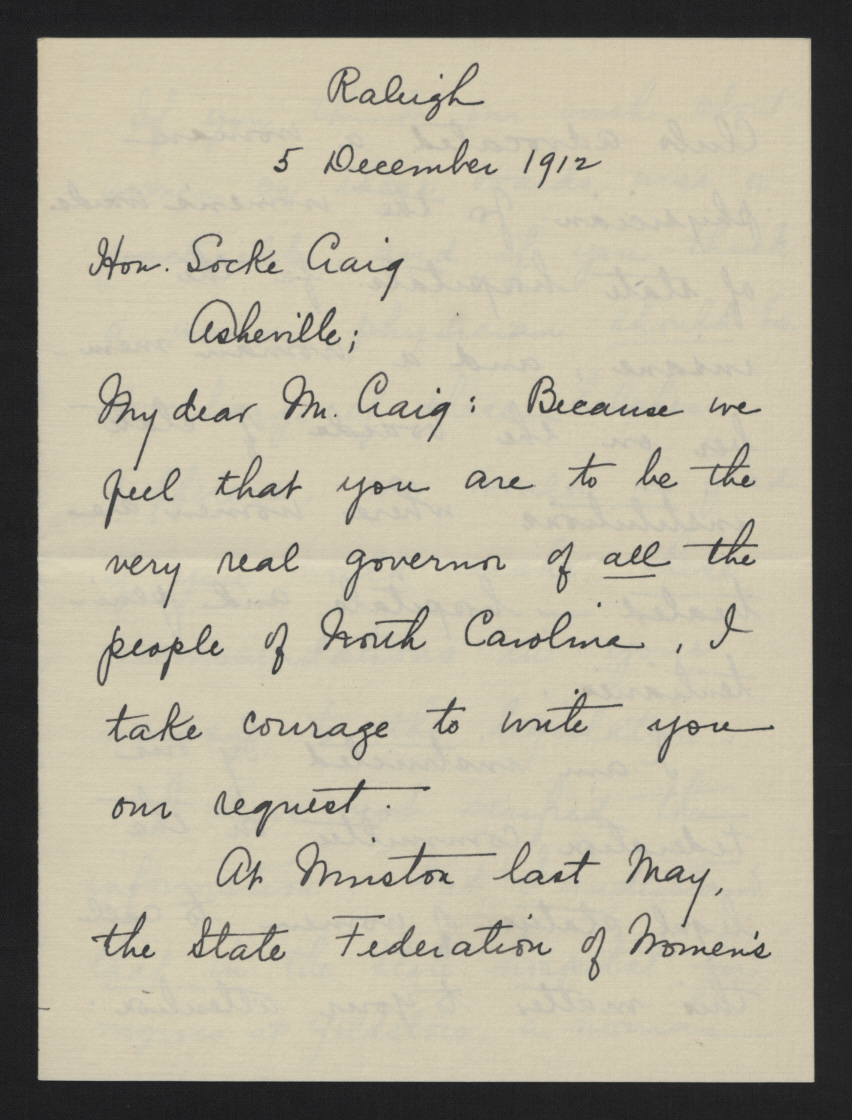 Raleigh
5 December 1912
Hon. Locke Craig
Asheville;
My dear Mr. Craig: Because we
feel that you are to be the
very real governor of all the
people of North Carolina, I
take courage to write you
our request.
At Winston last May,
the State Federation of Women's